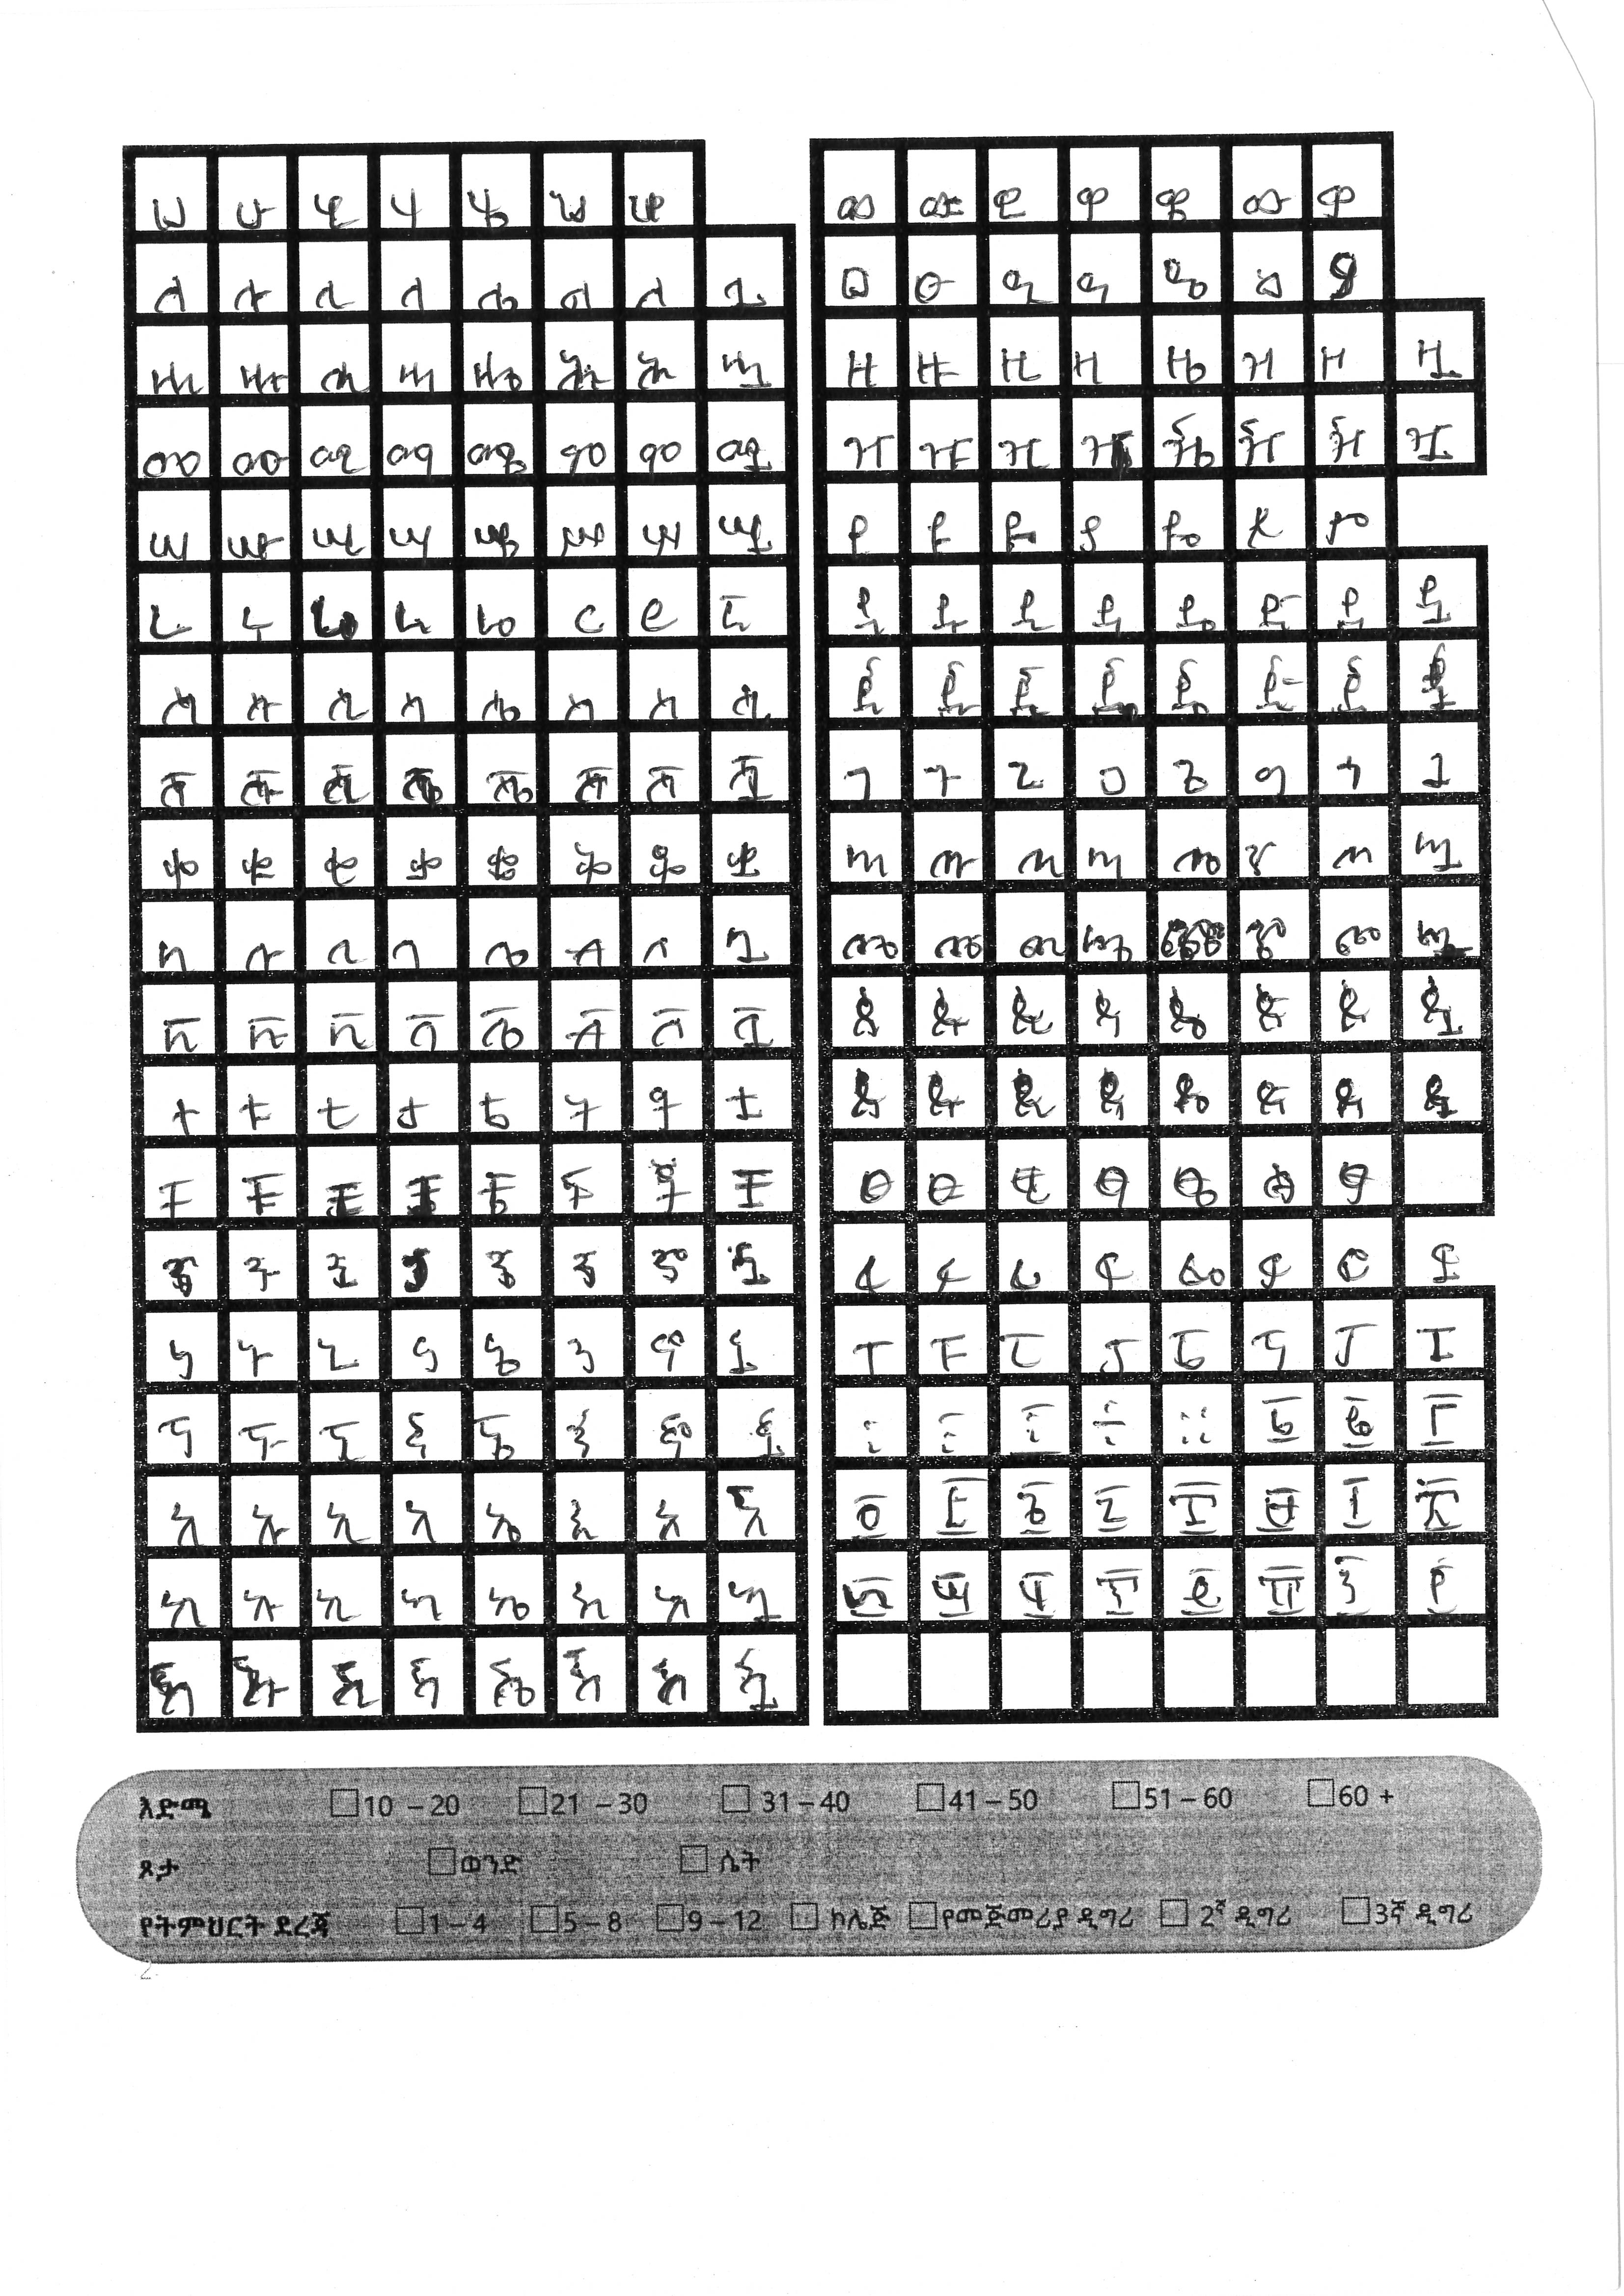 ሀ ሁ ሂ ሃ ሄ ህ ሆ
ለ ሉ ሊ ላ ሌ ል ሎ ሏ
ሐ ሑ ሒ ሓ ሔ ሕ ሖ ሗ
መ ሙ ሚ ማ ሜ ም ሞ ሟ
ሠ ሡ ሢ ሣ ሤ ሥ ሦ ሧ
ረ ሩ ሪ ራ ሬ ር ሮ ሯ
ሰ ሱ ሲ ሳ ሴ ስ ሶ ሷ
ሸ ሹ ሺ ሻ ሼ ሽ ሾ ሿ
ቀ ቁ ቂ ቃ ቄ ቅ ቆ ቋ
በ ቡ ቢ ባ ቤ ብ ቦ ቧ
ቨ ቩ ቪ ቫ ቬ ቭ ቮ ቯ
ተ ቱ ቲ ታ ቴ ት ቶ ቷ
ቸ ቹ ቺ ቻ ቼ ች ቾ ቿ
ኀ ኁ ኂ ኃ ኄ ኅ ኆ ኋ
ነ ኑ ኒ ና ኔ ን ኖ ኗ
ኘ ኙ ኚ ኛ ኜ ኝ ኞ ኟ
አ ኡ ኢ ኣ ኤ እ ኦ ኧ
ከ ኩ ኪ ካ ኬ ክ ኮ ኳ
ኸ ኹ ኺ ኻ ኼ ኽ ኾ ዃ
ወ ዉ ዊ ዋ ዌ ው ዎ
ዐ ዑ ዒ ዓ ዔ ዕ ዖ
ዘ ዙ ዚ ዛ ዜ ዝ ዞ ዟ
ዠ ዡ ዢ ዣ ዤ ዥ ዦ ዧ
የ ዩ ዪ ያ ዬ ይ ዮ
ደ ዱ ዲ ዳ ዴ ድ ዶ ዷ
ጀ ጁ ጂ ጃ ጄ ጅ ጆ ጇ
ገ ጉ ጊ ጋ ጌ ግ ጎ ጓ
ጠ ጡ ጢ ጣ ጤ ጥ ጦ ጧ
ጨ ጩ ጪ ጫ ጬ ጭ ጮ ጯ
ጰ ጱ ጲ ጳ ጴ ጵ ጶ ጷ
ጸ ጹ ጺ ጻ ጼ ጽ ጾ ጿ
ፀ ፁ ፂ ፃ ፄ ፅ ፆ
ፈ ፉ ፊ ፋ ፌ ፍ ፎ ፏ
ፐ ፑ ፒ ፓ ፔ ፕ ፖ ፗ
÷ ። ፩ ፪ ፫
፬ ፭ ፮ ፯ ፰ ፱ ፲ ፳
፴ ፵ ፶ ፷ ፸ ፹ ፺ ፻
እድሜ 10 – 20 21 – 30 31 – 40 41 – 50 51 – 60 60 +
ጾታ ወንድ ሴት
የትምህርት ደረጃ 1 – 4 5 – 8 9 – 12 ኮሌጅ የመጀመሪያ ዲግሪ 2ኛ ዲግሪ 3ኛ ዲግሪ
2